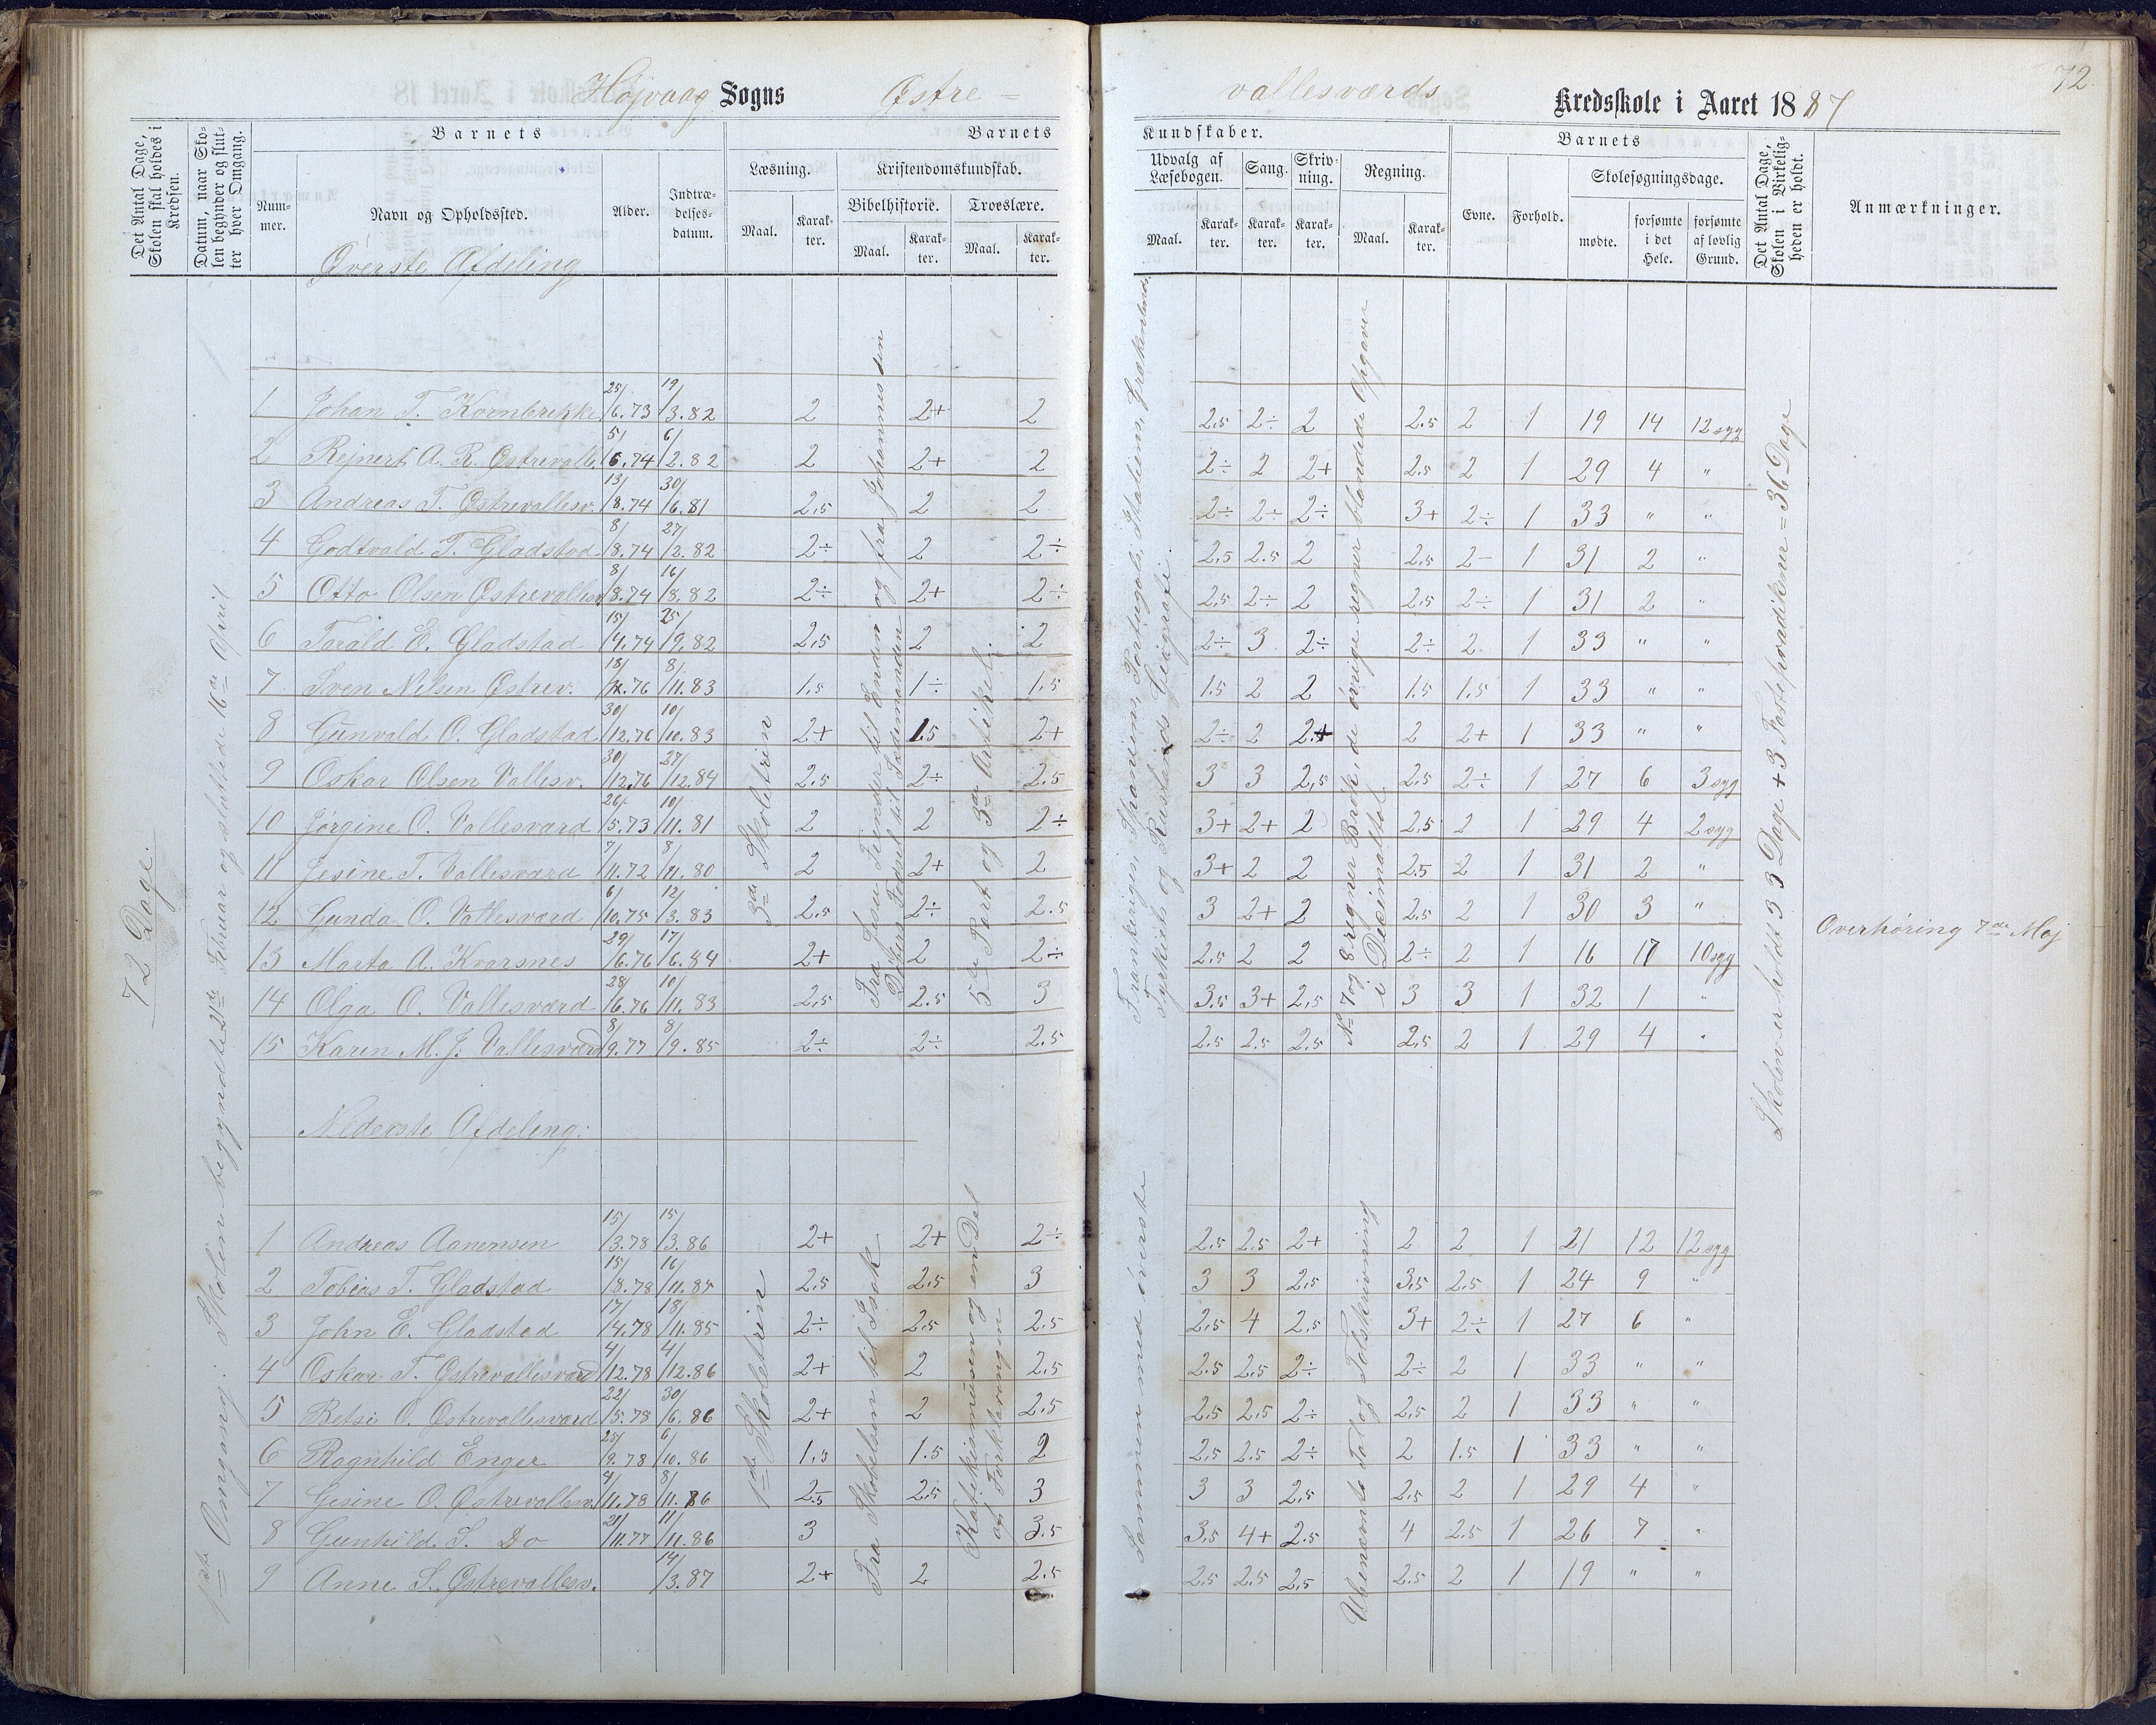 72
Højvaag Sogns Østre =
vallesværds Kredsskole i Aaret 1887
Det Antal Dage, Skolen skal holdes i Kredsen.
Datum, naar Skolen begynder og slutter hver Omgang.
Barnets
Nummer.
Navn og Opholdssted.
Alder.
Indtrædelsesdatum.
Barnets
Læsning.
Maal.
Karakter.
Kristendomskundskab.
Bibelhistorie.
Maal.
Karakter.
Troeslære.
Maal.
Karakter.
Kundskaber.
Udvalg af Læsebogen.
Maal.
Karakter.
Sang.
Karakter.
Skrivning.
Karakter.
Regning.
Maal.
Karakter.
Barnets
Evne.
Forhold.
Skolesøgningsdage.
mødte.
forsømte i det Hele.
forsømte af lovlig Grund.
Det Antal Dage, Skolen i Virkeligheden er holdt.
Anmærkninger.
Øverste Afdeling
72 Dage.
1ste Omgang: Skolen begyndte 21de Februar og sluttede 16de April
3de Skoletrin
Fra Jesu Fiender til Enden og fra Johannes den
Døbers Fødsel til Sædemanden
5te Part og 3de Artikel.
Frankrige, Spaniens, Portugals, Italiens, Grækenlands,
Tyrkiets og Ruslands Geografi.
No 7 og 8 regner Brøk, de øvrige regner blandede Opgaver
i Decimaltal
Skolen er holdt 33 Dage + 3 Fasteprædikener = 36 Dage
Overhøring 7de Maj
1 Johan T. Kornbrekke 25/6.73 19/3.82 2 2+ 2 2.5 2÷ 2 2.5 2 1 19 14 12 syg
2 Rejnert A. R. Østrevalle. 5/6.74 6/2.82 2 2+ 2 2÷ 2 2+ 2.5 2 1 29 4 "
3 Andreas T. Østrevallesv. 13/8.74 30/6.81 2,5 2 2 2÷ 2÷ 2÷ 3+ 2÷ 1 33 " "
4 Godtvald T. Gladstad 8/8.74 27/2.82 2÷ 2 2÷ 2.5 2.5 2 2.5 2- 1 31 2 "
5 Otto Olsen Østrevallesv. 8/8.74 16/8.82 2÷ 2+ 2÷ 2.5 2÷ 2 2.5 2÷ 1 31 2 "
6 Tarald E. Gladstad 15/4.74 25/9.82 2,5 2 2 2÷ 3 2÷ 2÷ 2 1 33 " "
7 Sven Nilsen Østrev. 18/ .76 8/11.83 1.5 1÷ 1.5 1.5 2 2 1.5 1.5 1 33 " "
8 Gunvald O. Gladstad 30/12.76 10/10.83 2+ 1.5 2+ 2÷ 2 2+ 2 2+ 1 33 " "
9 Oskar Olsen Vallesv. 30/12.76 27/12.84 2.5 2÷ 2.5 3 3 2,5 2.5 2÷ 1 27 6 3 syg
10 Jørgine O. Vallesværd 26/5.73 10/11.81 2 2 2÷ 3+ 2+ 2 2.5 2 1 29 4 2 syg
11 Jesine T. Vallesværd 7/11.72 8/11.80 2 2+ 2 3+ 2 2 2.5 2 1 31 2 "
12 Gunda O. Vallesværd 6/10.75 12/3.83 2,5 2÷ 2.5 3 2+ 2 2.5 2 1 30 3 "
13 Marta A. Kvarsnes 29/6.76 17/6.84 2+ 2 2÷ 2.5 2 2 2÷ 2 1 16 17 10 syg
14 Olga O. Vallesværd 28/6.76 10/11.83 2,5 2.5 3 3.5 3+ 2,5 3 3 1 32 1 "
15 Karen M. J. Vallesværd 8/9.77 8/9.85 2÷ 2÷ 2.5 2.5 2.5 2.5 2,5 2 1 29 4 "
Nederste Afdeling:
1ste Skoletrin
Fra Skabelsen til Isak
Katekismusen og en Del
af Forklaringen
Sammen med øverste
Ubenævnte Tal og Talskrivning
1 Andreas Aanensen 15/3.78 15/3.86 2+ 2+ 2÷ 2.5 2.5 2+ 2 2 1 21 12 12 syg
2 Tobias T. Gladstad 15/8.78 16/11.85 2,5 2.5 3 3 3 2.5 3,5 2.5 1 24 9 "
3 John E. Gladstad 17/4.78 18/11.85 2÷ 2.5 2.5 2.5 4 2.5 3+ 2÷ 1 27 6 "
4 Oskar T. Østrevallesværd 4/12.78 4/12.86 2+ 2 2,5 2.5 2.5 2÷ 2÷ 2 1 33 " "
5 Betsi O. Østrevallesværd 22/5.78 30/6.86 2+ 2 2.5 2.5 2,5 2÷ 2,5 2 1 33 " "
6 Ragnhild Enger 25/9.78 6/10.86 1,5 1.5 2 2,5 2.5 2÷ 2 1.5 1 33 " "
7 Gesine O. Østrevallesv. 4/11.78 8/11.86 2.5 2.5 3 3 3 2.5 2.5 2 1 29 4 "
8 Gunhild S. Do 21/11.77 11/11.86 3 3.5 3,5 4+ 2.5 4 2.5 1 26 7 "
9 Anne S. Østrevallesv. 14/3.87 2+ 2 2.5 2.5 2.5 2.5 2.5 2 1 19 " "